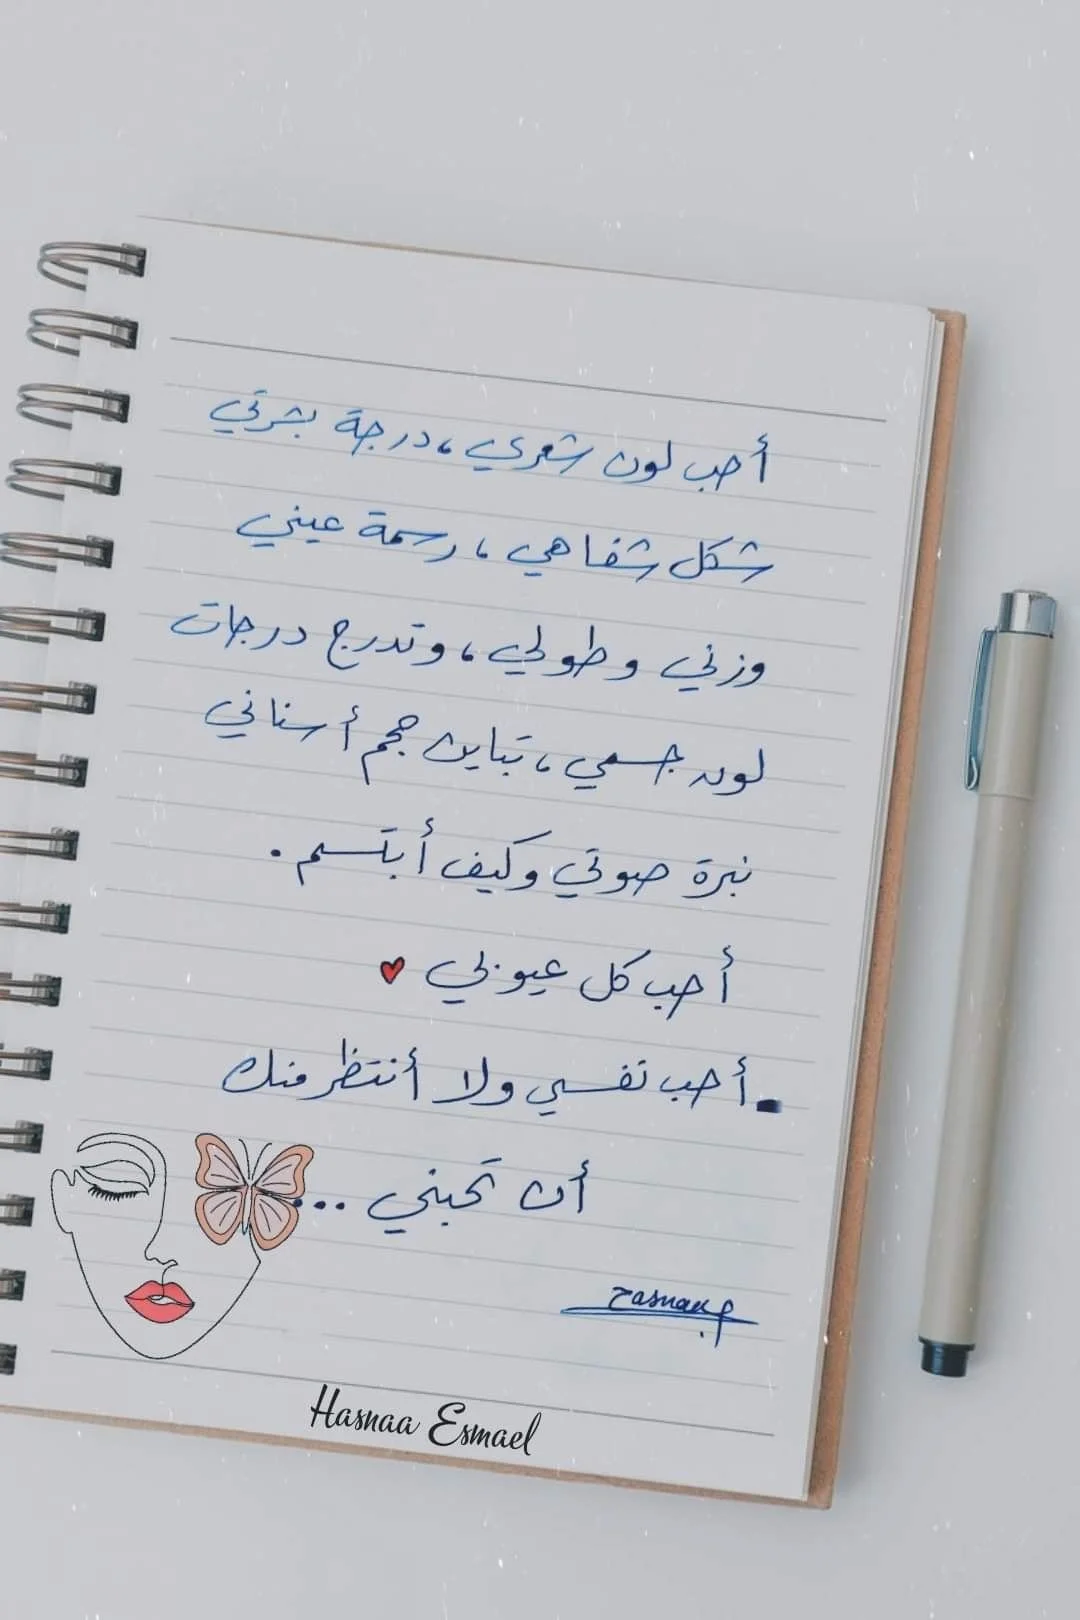 أحب لون شعري ، درجة بشرتي
شكل شفاهي ، رسمة عيني
وزني وطولي ، وتدرج درجات
لون جسمي ، تباين حجم أسناني
نبرة صوتي وكيف أبتسم .
أحب كل عيوبي ♥
أحب نفسي ولا أنتظر منك
أن تحبني ...
Hasnaa Esmael